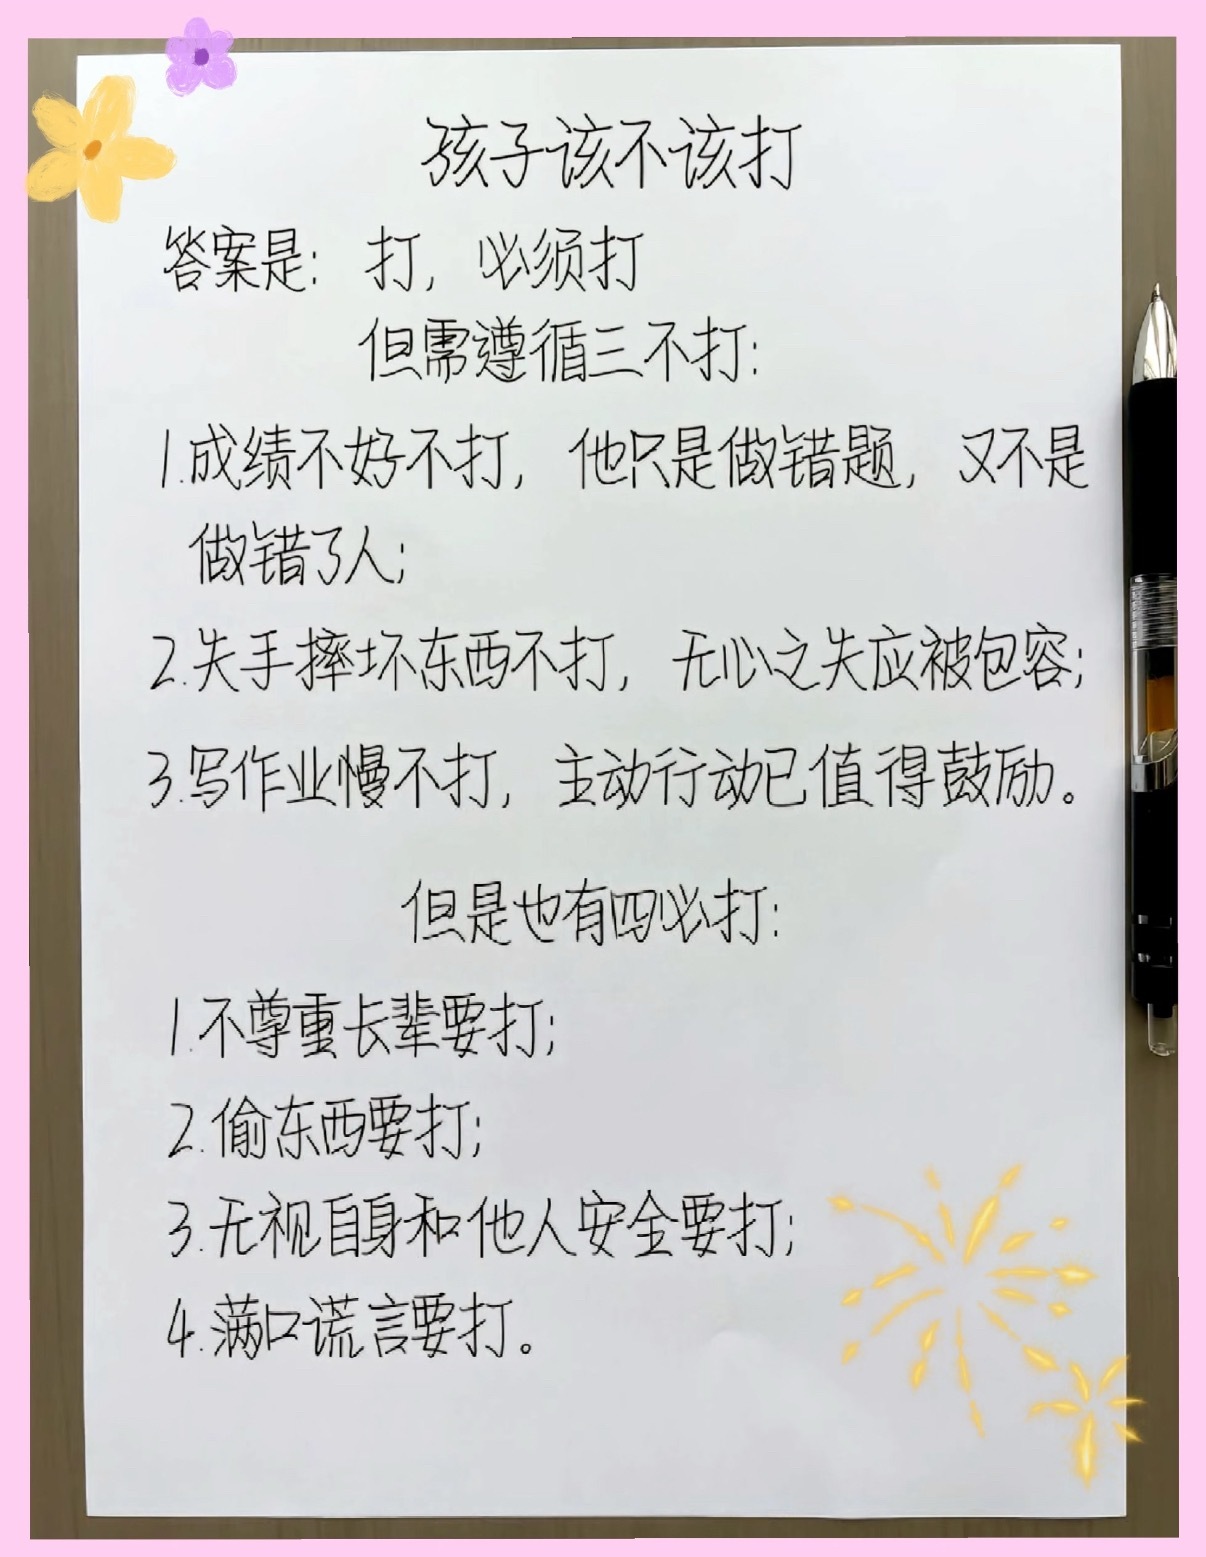 孩子该不该打
答案是：打，必须打
但需遵循三不打：
1.成绩不好不打，他只是做错题，又不是
做错了人；
2.失手摔坏东西不打，无心之失应被包容；
3.写作业慢不打，主动行动已值得鼓励。
但是也有四必打：
1.不尊重长辈要打；
2.偷东西要打；
3.无视自身和他人安全要打；
4.满口谎言要打。